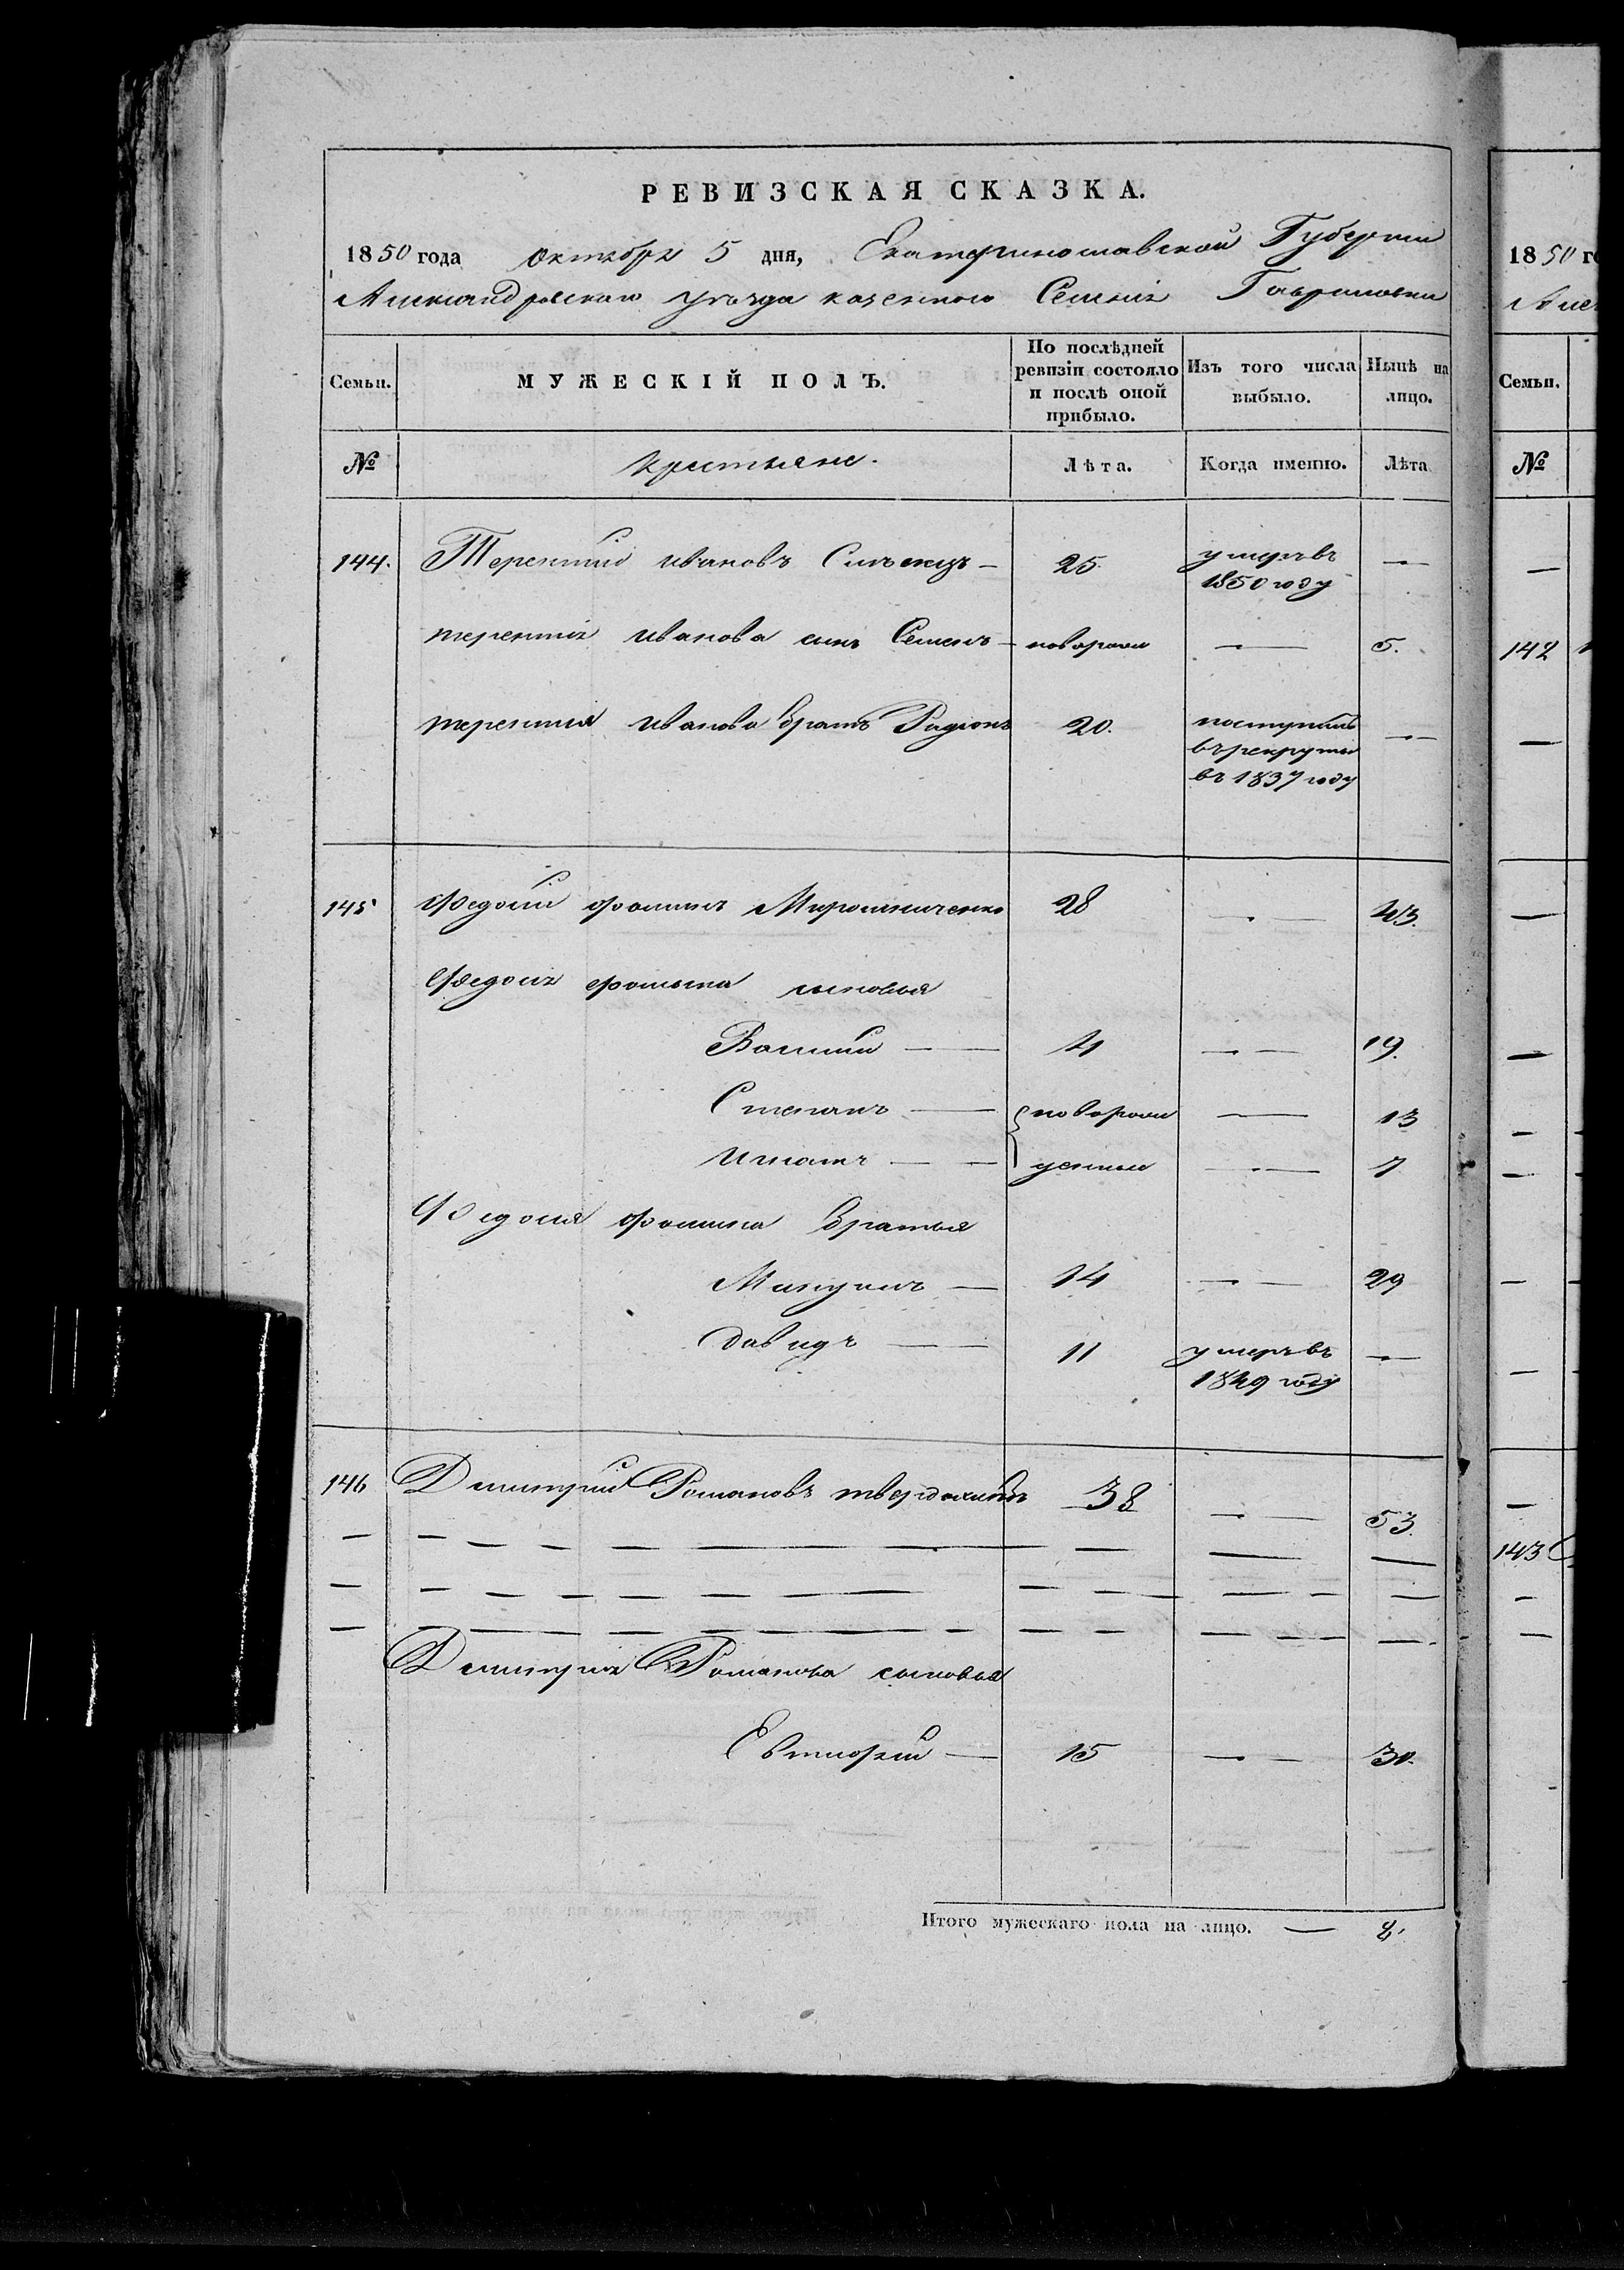 РЕВИЗСКАЯ СКАЗКА.
1850 года октября 5 дня, Екатеринославской Губернии
Александровскаго уезда казенного Селенія Гавриловки
Семьи. МУЖЕСКІЙ ПОЛЪ. По послѣдней ревизіи состояло и послѣ оной прибыло. Изъ того числа выбыло. Нынѣ на лицо.
№ крестьяне. Лѣта. Когда именно. Лѣта
144. Терентий ивановъ 25 умеръ въ —
1850 году
терентія иванова сынъ Семенъ — новорож — 5.
терентия иванова братъ Радіонъ 20. поступилъ —
въ рекруты
въ 1837 году
145 Федосій фоминъ Мирошниченко 28 — 43.
Федосія фомина сыновья
Василий — 4 — 19.
Степанъ — новорож — 13
Игнатъ — денныи — 7
Федосия фомина братья
— 14 — 29
Давидъ — 11 умеръ въ —
1849 году
146 Дмитрій Романовъ твердохлебъ 38 — 53.
Дмитрія Романова сыновья
Евтихій — 15 — 30.
Итого мужескаго пола на лицо. — 8.
1850 го
Але
Семьи.
№
142
143